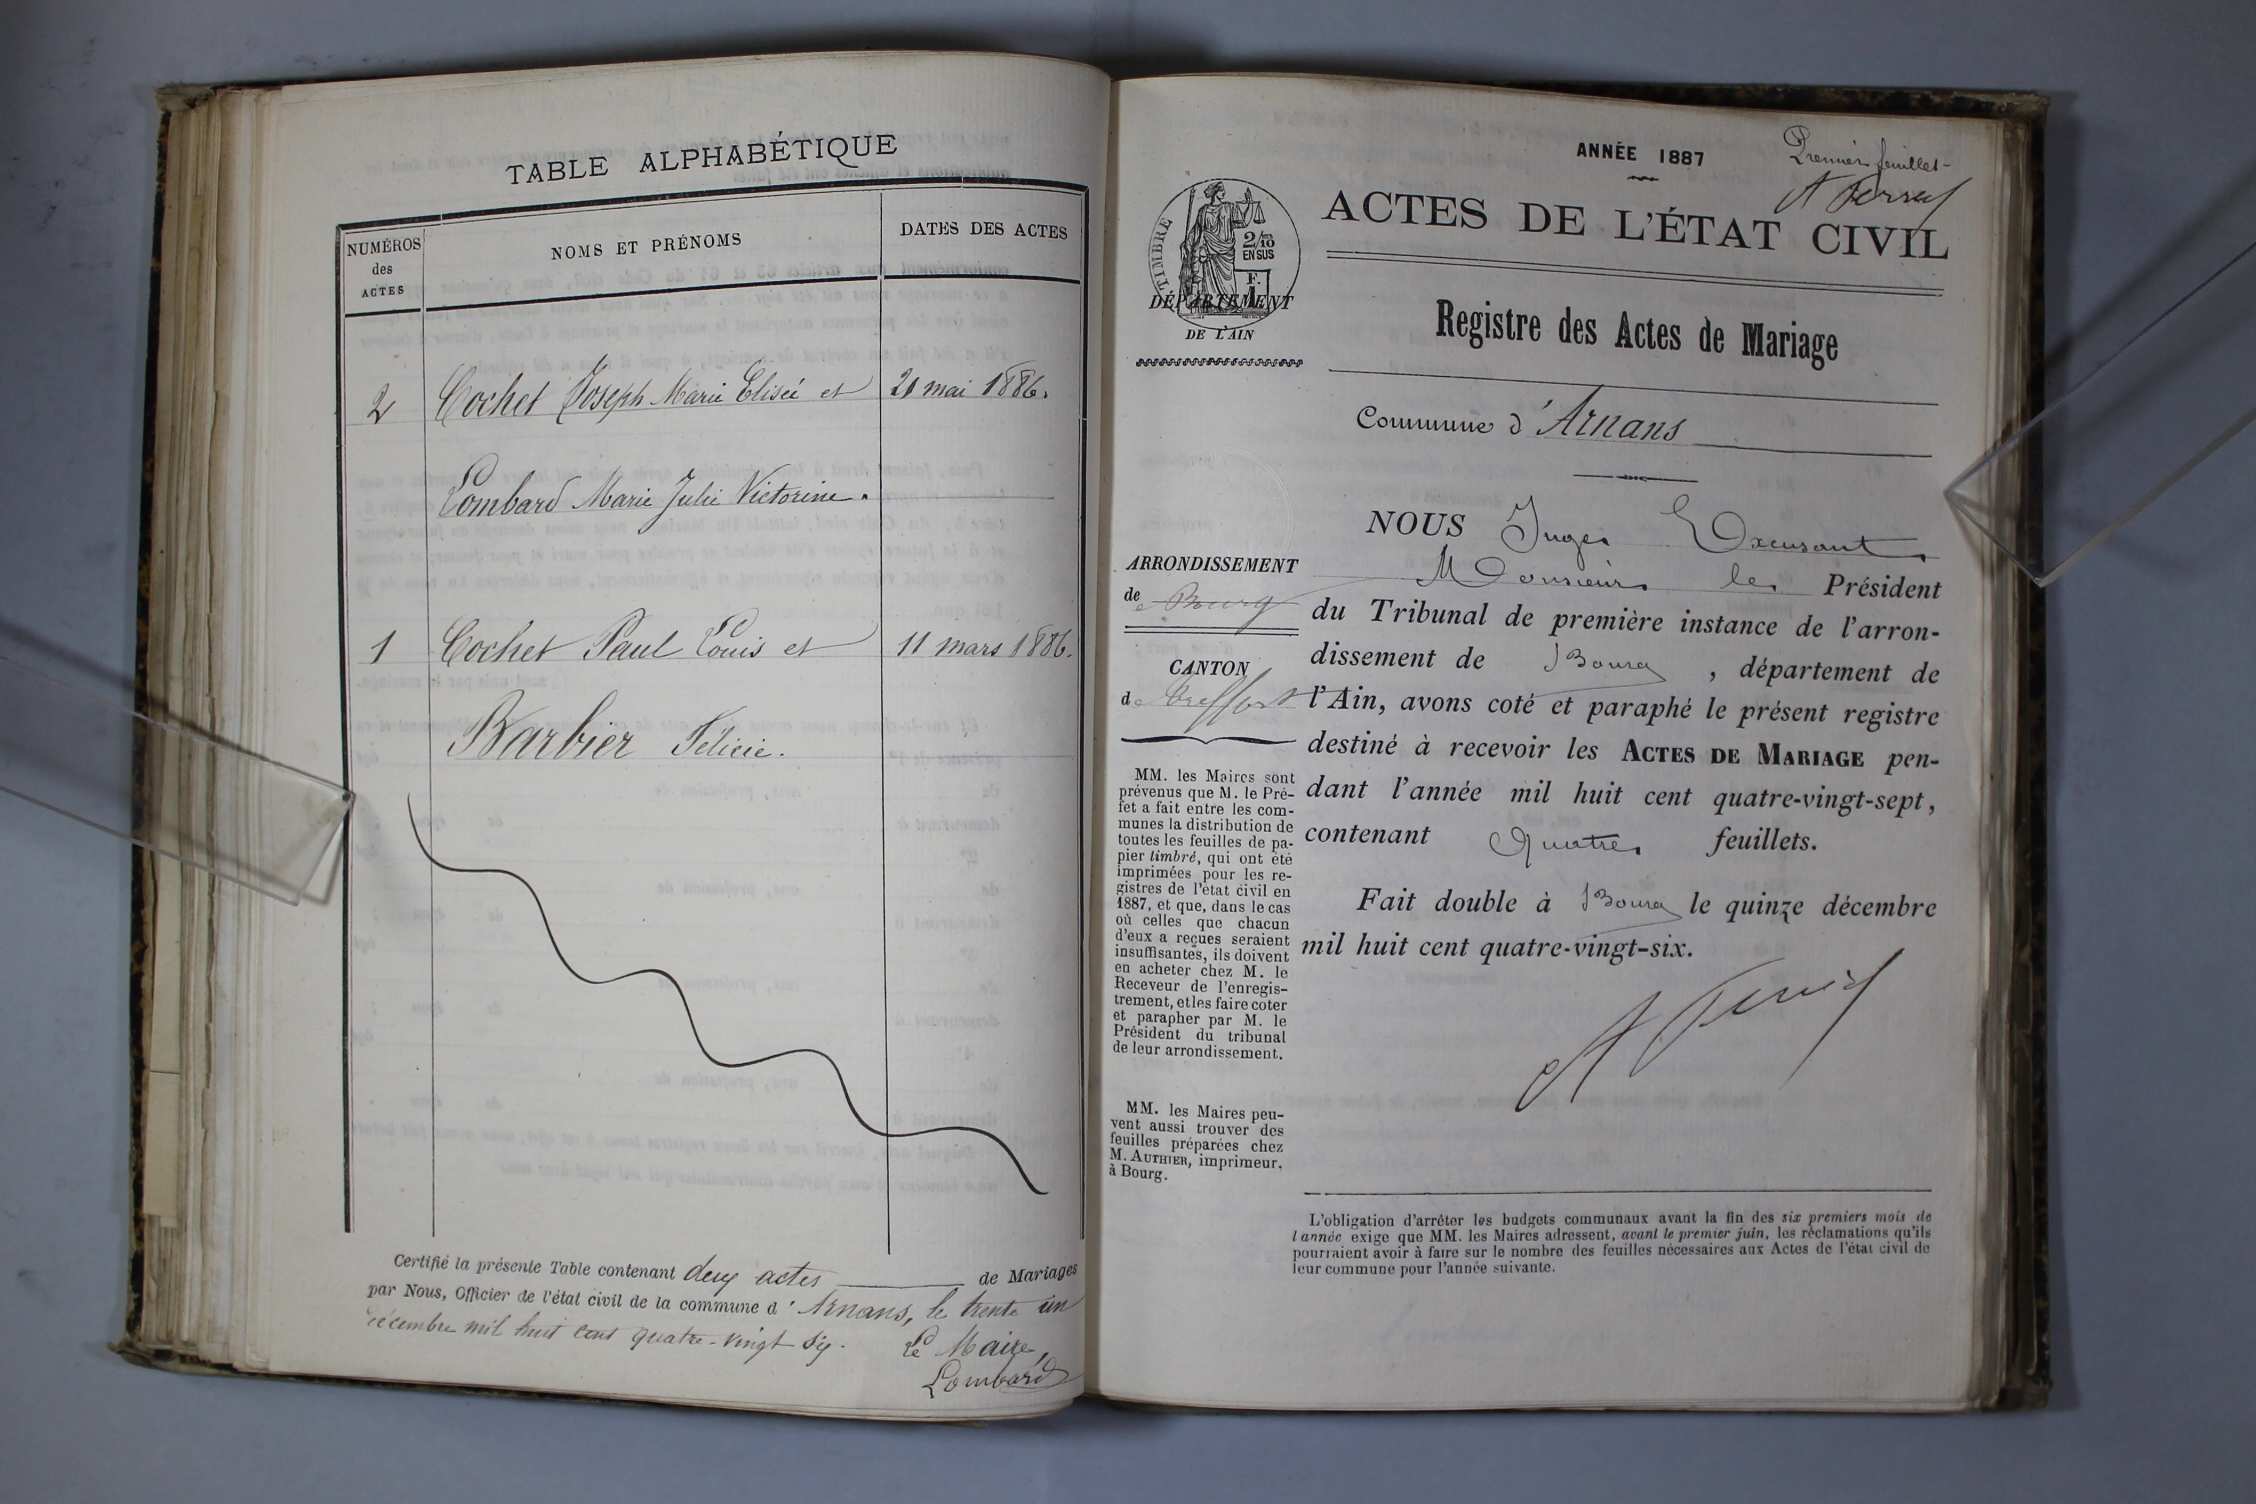 TABLE ALPHABÉTIQUE
NUMÉROS
des
ACTES
NOMS ET PRÉNOMS
DATES DES ACTES
2 Cochet Joseph Marie Elisée et 21 mai 1886.
Lombard Marie Julie Victorine.
1 Cochet Paul Louis et 11 mars 1886.
Barbier Félicie.
Certifié la présente Table contenant deux actes de Mariages
par Nous, Officier de l'état civil de la commune d'Arnans, le trente un
décembre mil huit cent quatre-vingt six.
Le Maire,
Lombard
Premier feuillet
ANNÉE 1887
ACTES DE L'ÉTAT CIVIL
TIMBRE
2/10
EN SUS
F.
1
DÉPARTEMENT
DE L'AIN
Registre des Actes de Mariage
Commune d'Arnans
ARRONDISSEMENT
de Bourg
CANTON
de Treffort
MM. les Maires sont
prévenus que M. le Pré-
fet a fait entre les com-
munes la distribution de
toutes les feuilles de pa-
pier timbré, qui ont été
imprimées pour les re-
gistres de l'état civil en
1887, et que, dans le cas
où celles que chacun
d'eux a reçues seraient
insuffisantes, ils doivent
en acheter chez M. le
Receveur de l'enregis-
trement, et les faire coter
et parapher par M. le
Président du tribunal
de leur arrondissement.
MM. les Maires peu-
vent aussi trouver des
feuilles préparées chez
M. AUTHIER, imprimeur,
à Bourg.
NOUS Juge Excusant
Monsieur le Président
du Tribunal de première instance de l'arron-
dissement de Bourg, département de
l'Ain, avons coté et paraphé le présent registre
destiné à recevoir les ACTES DE MARIAGE pen-
dant l'année mil huit cent quatre-vingt-sept,
contenant Quatre feuillets.
Fait double à Bourg le quinze décembre
mil huit cent quatre-vingt-six.
L'obligation d'arrêter les budgets communaux avant la fin des six premiers mois de
l'année exige que MM. les Maires adressent, avant le premier juin, les réclamations qu'ils
pourraient avoir à faire sur le nombre des feuilles nécessaires aux Actes de l'état civil de
leur commune pour l'année suivante.